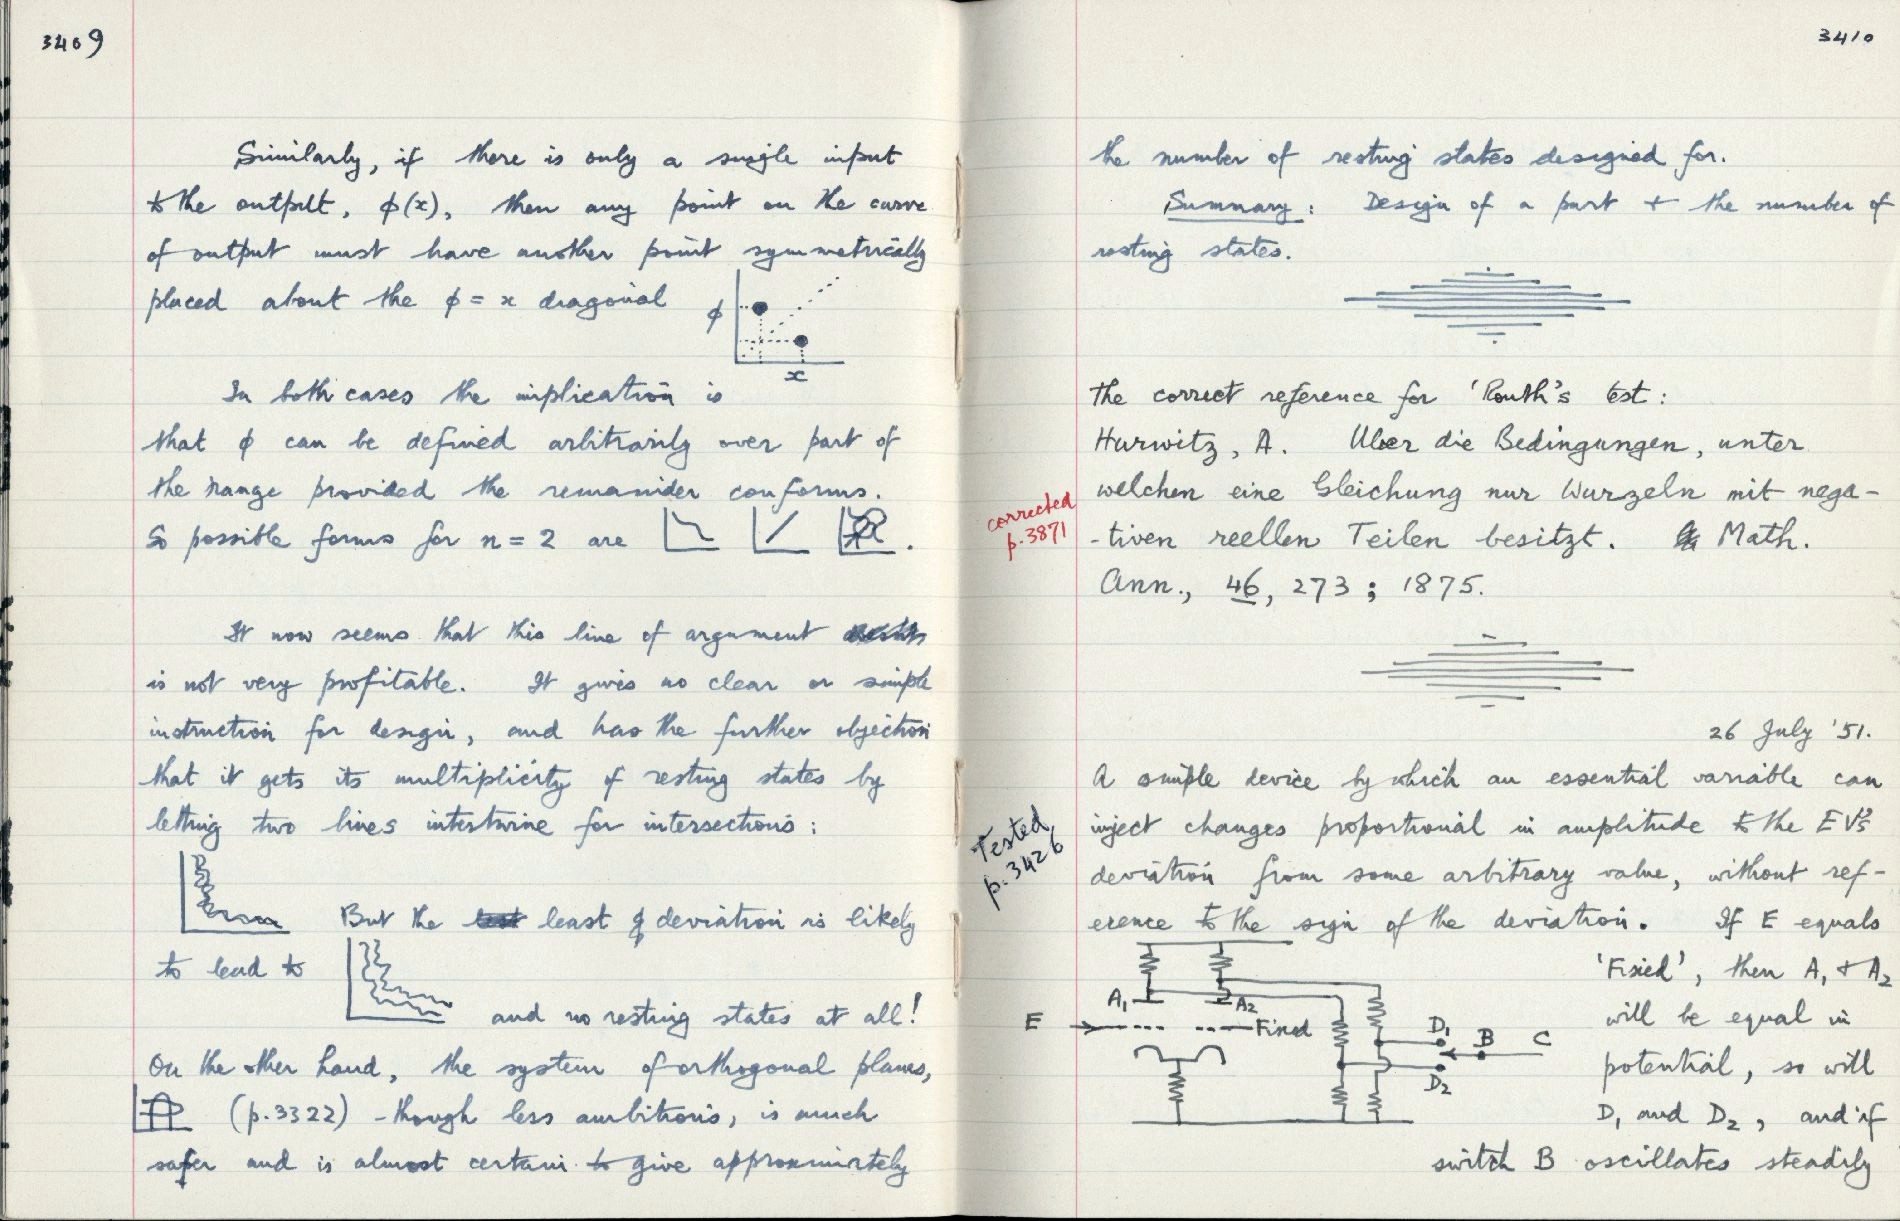 3409
Similarly, if there is only a single input
to the output, ϕ(x), then any point on the curve
of output must have another point symmetrically
placed about the ϕ = x diagonal
ϕ
x
In both cases the implication is
that ϕ can be defined arbitrarily over part of
the range provided the remainder conforms.
So possible forms for n = 2 are .
It now seems that this line of argument
is not very profitable. It gives no clear or simple
instruction for design, and has the further objection
that it gets its multiplicity of resting states by
letting two lines intertwine for intersections:
But the least deviation is likely
to lead to
and no resting states at all!
On the other hand, the system of orthogonal planes,
(p.3322) - though less ambitious, is much
safer and is almost certain to give approximately
3410
the number of resting states designed for.
Summary: Design of a part + the number of
resting states.
The correct reference for 'Routh's test:
Hurwitz, A. Uber die Bedingungen, unter
welchen eine Gleichung nur Wurzeln mit nega-
-tiven reellen Teilen besitzt. Math.
Ann., 46, 273; 1875.
corrected
p.3871
26 July '51.
A simple device by which an essential variable can
inject changes proportional in amplitude to the EV's
deviation from some arbitrary value, without ref-
erence to the sign of the deviation. If E equals
Tested
p.3426
'Fixed', then A1 + A2
will be equal in
potential, so will
D1 and D2, and if
switch B oscillates steadily
A1
A2
E
Fixed
D1
B
C
D2